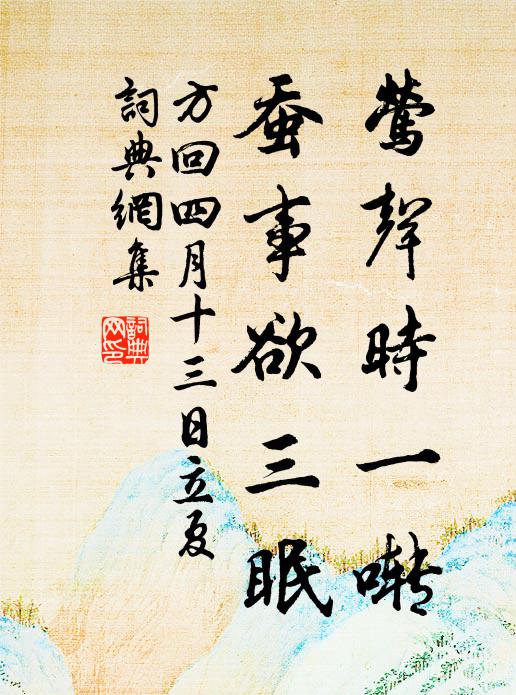 鶯聲時一囀
蚕事欲三眠
方回四月十三日立夏
詞典網集
詞典网印